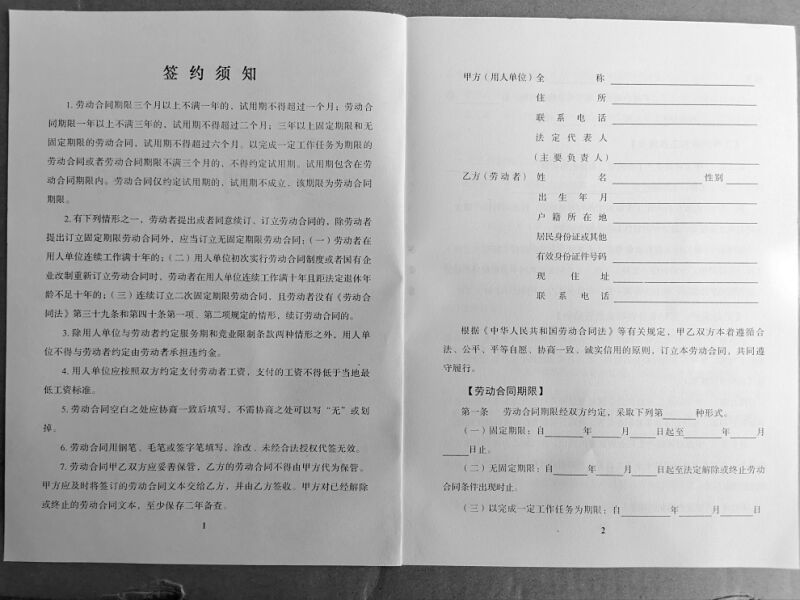 签约须知
1. 劳动合同期限三个月以上不满一年的，试用期不得超过一个月；劳动合
同期限一年以上不满三年的，试用期不得超过二个月；三年以上固定期限和无
固定期限的劳动合同，试用期不得超过六个月。以完成一定工作任务为期限的
劳动合同或者劳动合同期限不满三个月的，不得约定试用期。试用期包含在劳
动合同期限内。劳动合同仅约定试用期的，试用期不成立，该期限为劳动合同
期限。
2. 有下列情形之一，劳动者提出或者同意续订、订立劳动合同的，除劳动者
提出订立固定期限劳动合同外，应当订立无固定期限劳动合同：（一）劳动者在
用人单位连续工作满十年的；（二）用人单位初次实行劳动合同制度或者国有企
业改制重新订立劳动合同时，劳动者在用人单位连续工作满十年且距法定退休年
龄不足十年的；（三）连续订立二次固定期限劳动合同，且劳动者没有《劳动合
同法》第三十九条和第四十条第一项、第二项规定的情形，续订劳动合同的。
3. 除用人单位与劳动者约定服务期和竞业限制条款两种情形之外，用人单
位不得与劳动者约定由劳动者承担违约金。
4. 用人单位应按照双方约定支付劳动者工资，支付的工资不得低于当地最
低工资标准。
5. 劳动合同空白之处应协商一致后填写，不需协商之处可以写“无”或划
掉。
6. 劳动合同用钢笔、毛笔或签字笔填写，涂改、未经合法授权代签无效。
7. 劳动合同甲乙双方应妥善保管，乙方的劳动合同不得由甲方代为保管。
甲方应及时将签订的劳动合同文本交给乙方，并由乙方签收。甲方对已经解除
或终止的劳动合同文本，至少保存二年备查。
1
甲方（用人单位）全 称
住 所
联系电话
法定代表人
（主要负责人）
乙方（劳动者）姓 名 性别
出生年月
户籍所在地
居民身份证或其他
有效身份证件号码
现住址
联系电话
根据《中华人民共和国劳动合同法》等有关规定，甲乙双方本着遵循合
法、公平、平等自愿、协商一致、诚实信用的原则，订立本劳动合同，共同遵
守履行。
【劳动合同期限】
第一条 劳动合同期限经双方约定，采取下列第______种形式。
（一）固定期限：自______年____月____日起至______年____月
____日止。
（二）无固定期限：自______年____月____日起至法定解除或终止劳动
合同条件出现时止。
（三）以完成一定工作任务为期限：自______年____月____日
2